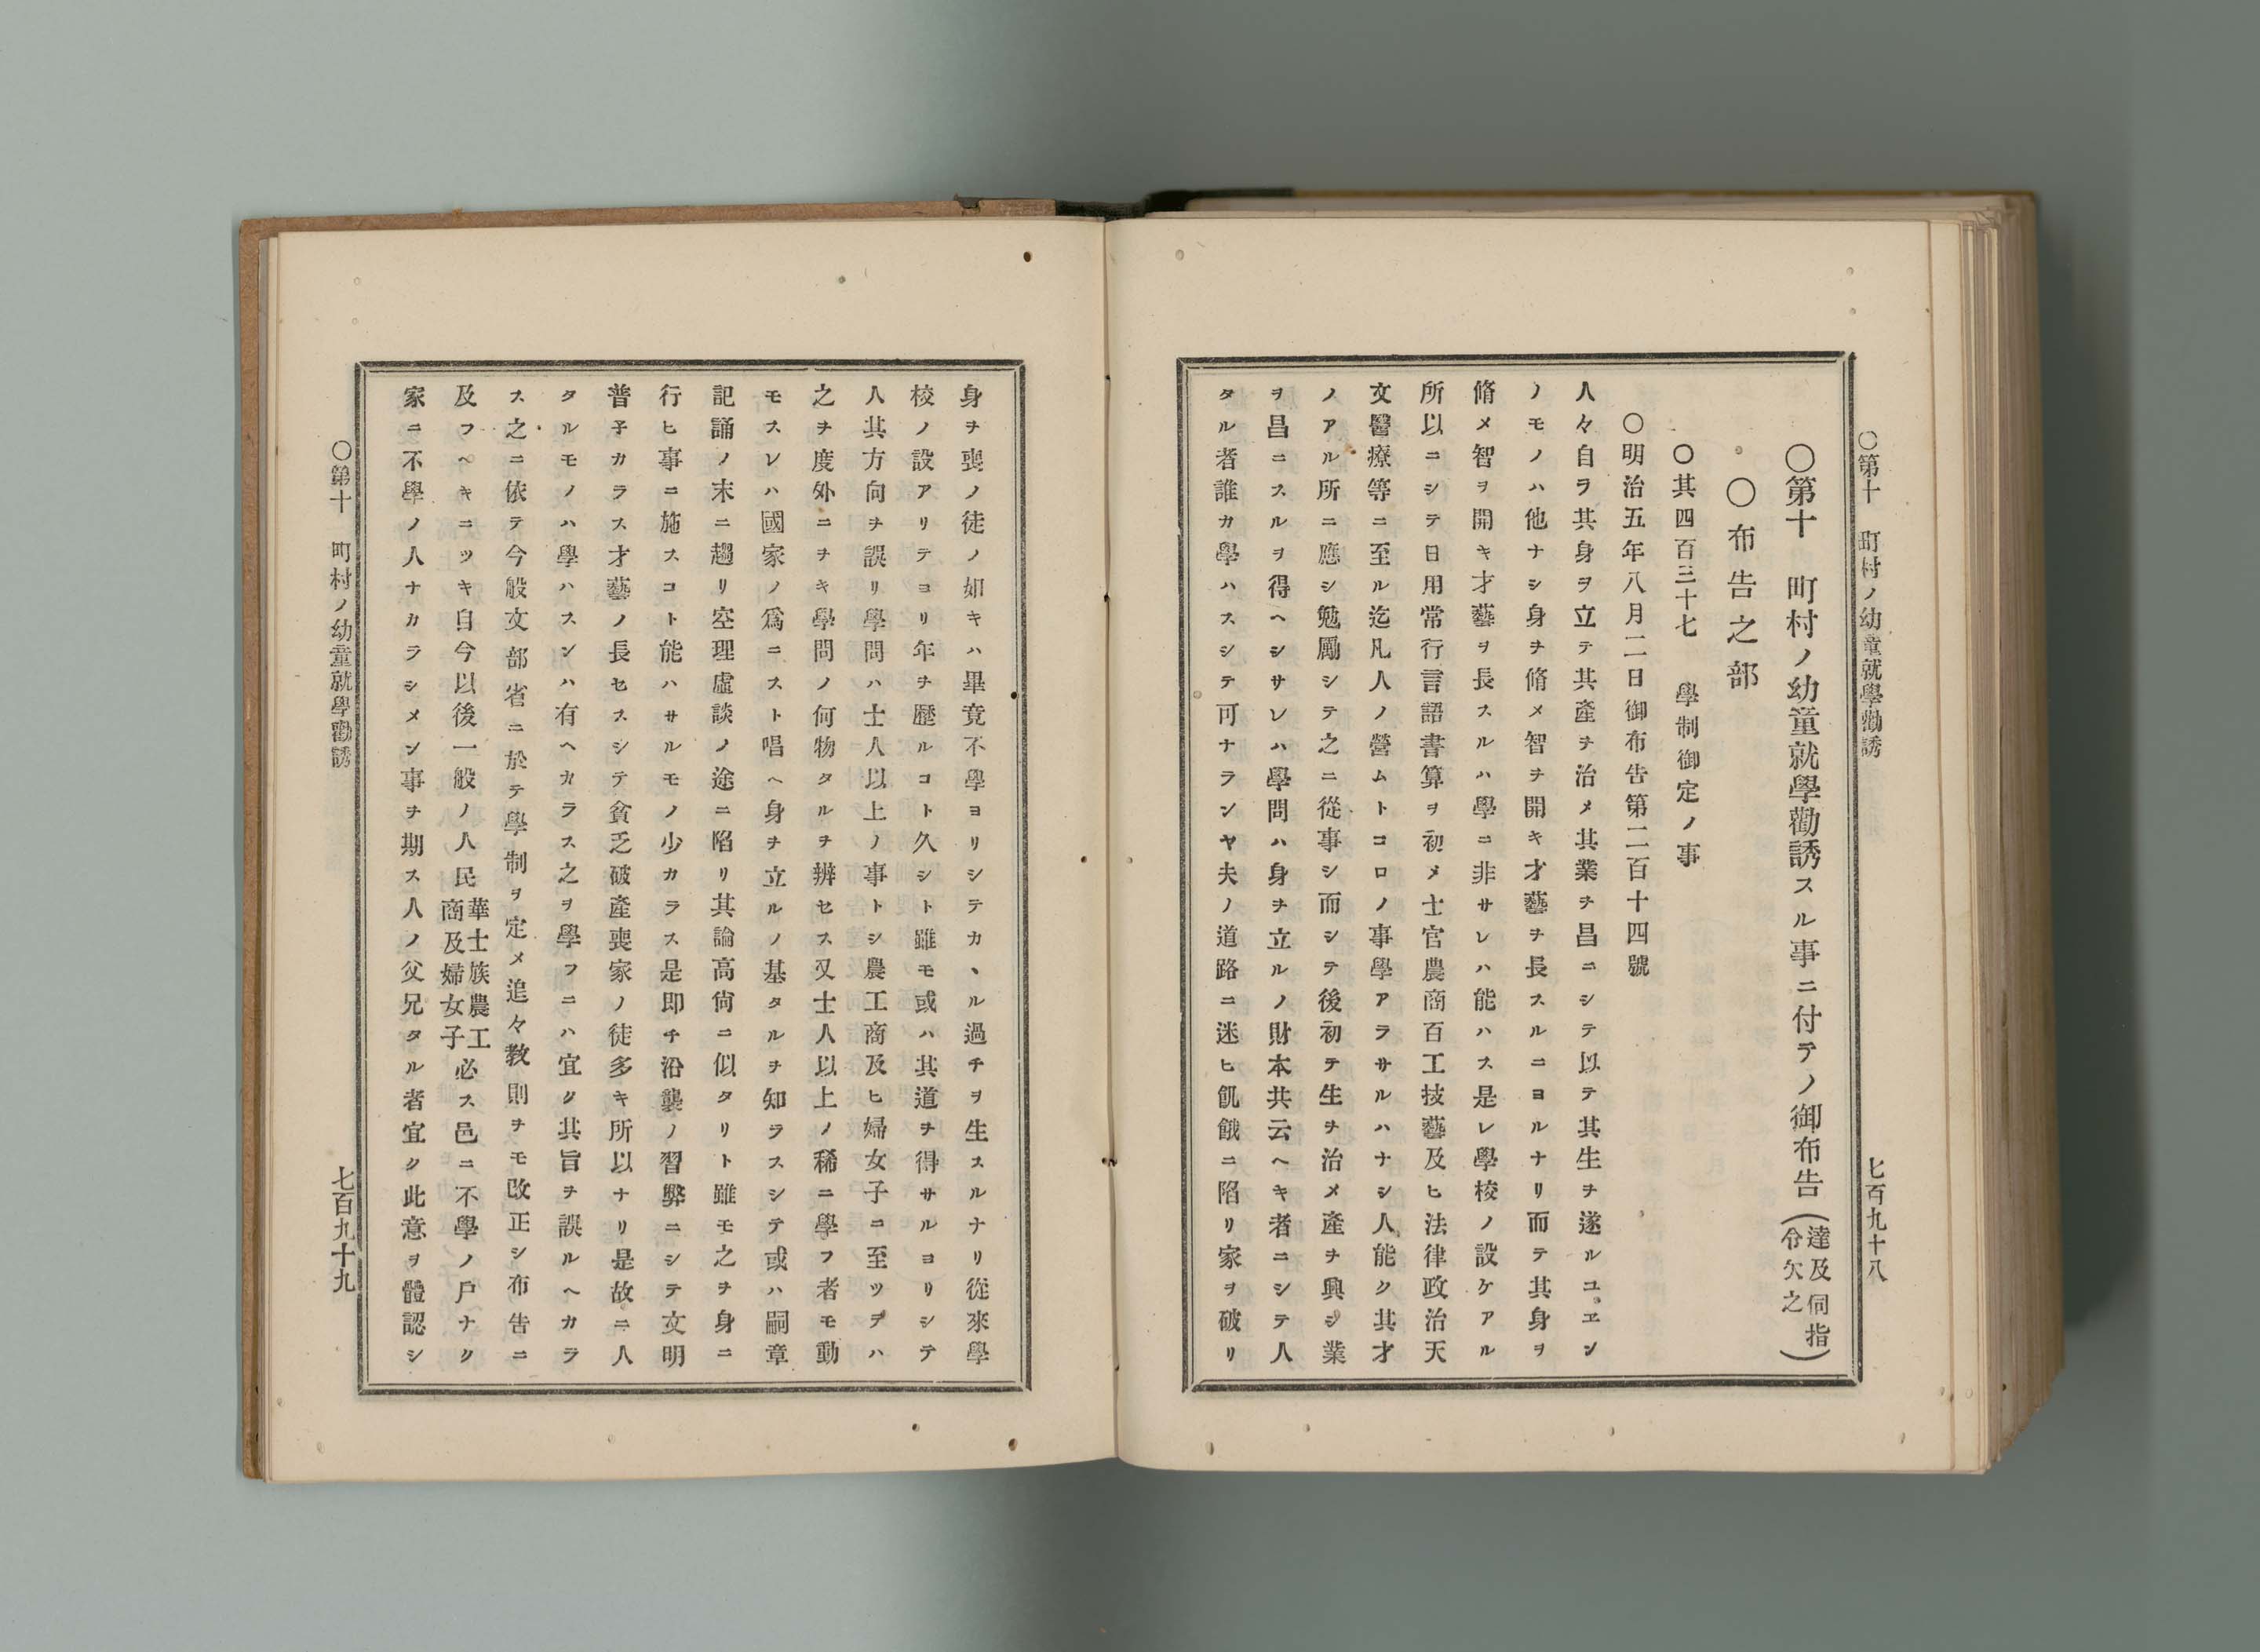 〇第十　町村ノ幼童就學勸誘
七百九十八
〇第十　町村ノ幼童就學勸誘スル事ニ付テノ御布告（達及伺指令欠之）
〇布告之部
〇其四百三十七　學制御定ノ事
〇明治五年八月二日御布告第二百十四號
人々自ラ其身ヲ立テ其產ヲ治メ其業ヲ昌ニシテ以テ其生ヲ遂ルユヱン
ノモノハ他ナシ身ヲ脩メ智ヲ開キ才藝ヲ長スルニヨルナリ而テ其身ヲ
脩メ智ヲ開キ才藝ヲ長スルハ學ニ非サレハ能ハス是レ學校ノ設ケアル
所以ニシテ日用常行言語書算ヲ初メ士官農商百工技藝及ヒ法律政治天
文醫療等ニ至ル迄凡人ノ營ムトコロノ事學アラサルハナシ人能ク其才
ノアル所ニ應シ勉勵シテ之ニ從事シ而シテ後初テ生ヲ治メ產ヲ興シ業
ヲ昌ニスルヲ得ヘシサレハ學問ハ身ヲ立ルノ財本共云ヘキ者ニシテ人
タル者誰カ學ハスシテ可ナランヤ夫ノ道路ニ迷ヒ飢餓ニ陷リ家ヲ破リ
身ヲ喪ノ徒ノ如キハ畢竟不學ヨリシテカヽル過チヲ生スルナリ從來學
校ノ設アリテヨリ年ヲ歷ルコト久シト雖モ或ハ其道ヲ得サルヨリシテ
人其方向ヲ誤リ學問ハ士人以上ノ事トシ農工商及ヒ婦女子ニ至ツテハ
之ヲ度外ニヲキ學問ノ何物タルヲ辨セス又士人以上ノ稀ニ學フ者モ動
モスレハ國家ノ爲ニスト唱ヘ身ヲ立ルノ基タルヲ知ラスシテ或ハ嗣章
記誦ノ末ニ趨リ空理虛談ノ途ニ陷リ其論高尙ニ似タリト雖モ之ヲ身ニ
行ヒ事ニ施スコト能ハサルモノ少カラス是即チ沿襲ノ習弊ニシテ文明
普子カラス才藝ノ長セスシテ貧乏破產喪家ノ徒多キ所以ナリ是故ニ人
タルモノハ學ハスンハ有ヘカラス之ヲ學フニハ宜ク其旨ヲ誤ルヘカラ
ス之ニ依テ今般文部省ニ於テ學制ヲ定メ追々敎則ヲモ改正シ布告ニ
及フヘキニツキ自今以後一般ノ人民華士族農工商及婦女子必ス邑ニ不學ノ戶ナク
家ニ不學ノ人ナカラシメン事ヲ期ス人ノ父兄タル者宜ク此意ヲ體認シ
〇第十　町村ノ幼童就學勸誘
七百九十九